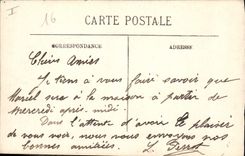 I
16
CARTE POSTALE
CORRESPONDANCE
ADRESSE
Chers Amies
Je tiens à vous faire savoir que
Marcel sera à la maison à partir de
Mercredi après-midi.
Dans l'attente d'avoir le plaisir
de vous voir, nous vous envoyons nos
bonnes amitiées.